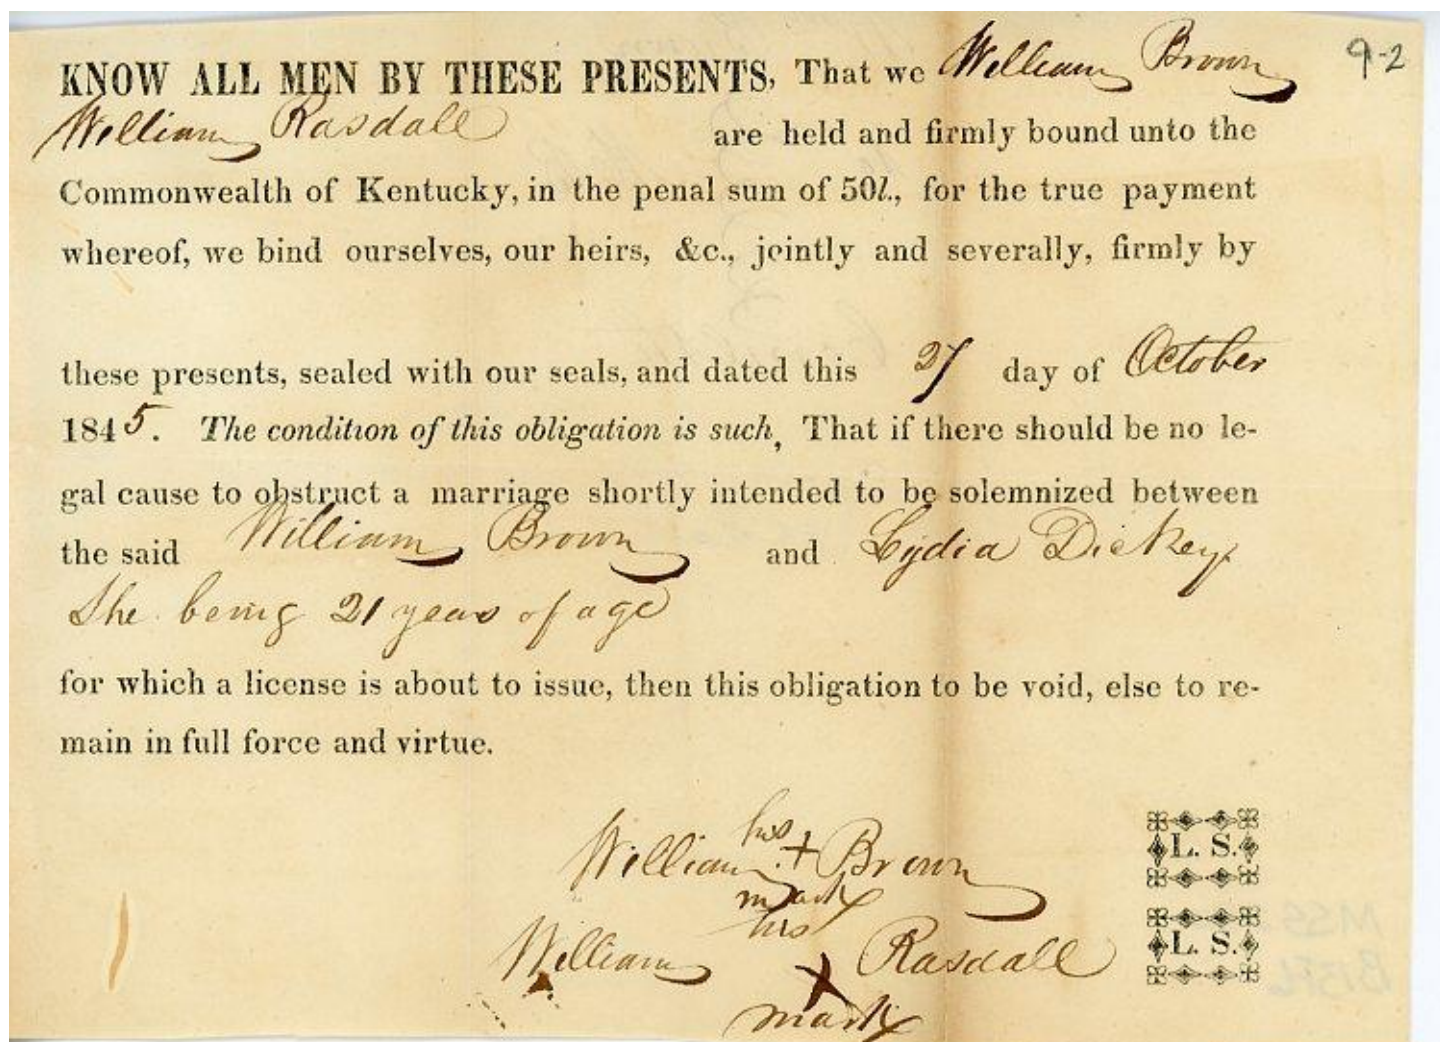 KNOW ALL MEN BY THESE PRESENTS, That we William Brown 9-2
William Rasdall are held and firmly bound unto the
Commonwealth of Kentucky, in the penal sum of 50l., for the true payment
whereof, we bind ourselves, our heirs, &c., jointly and severally, firmly by
these presents, sealed with our seals, and dated this 27 day of October
1845. The condition of this obligation is such, That if there should be no le-
gal cause to obstruct a marriage shortly intended to be solemnized between
the said William Brown and Lydia Dickey
She being 21 years of age
for which a license is about to issue, then this obligation to be void, else to re-
main in full force and virtue.
his
William + Brown L. S.
mark
his
William X Rasdall L. S.
mark